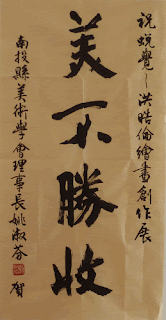 祝蛻覺~洪晧倫繪畫創作展
美不勝收
南投縣美術學會理事長姚淑芬 賀